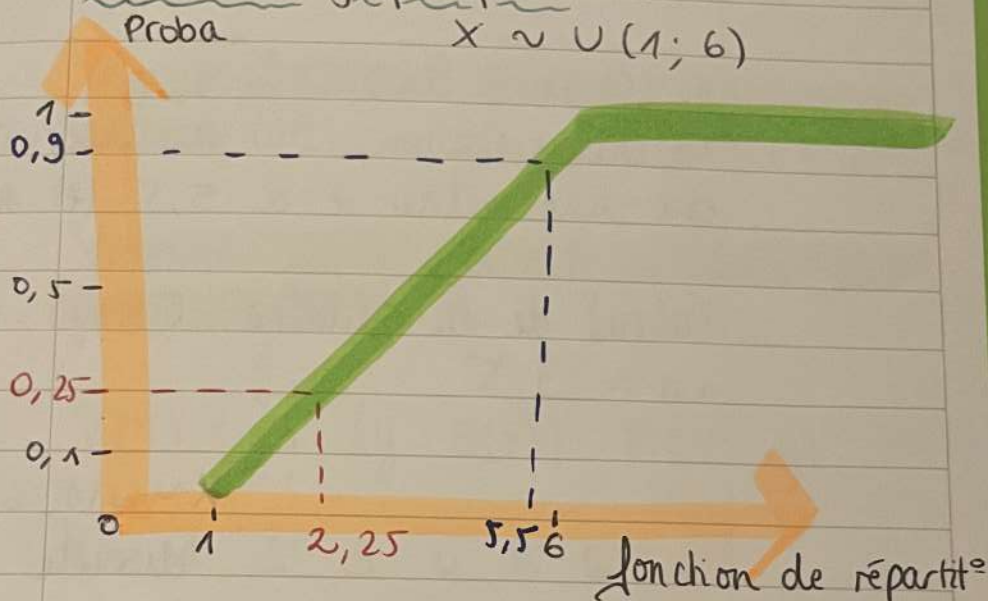 Proba
X ~ U (1; 6)
1
0,9
0,5
0,25
0,1
0
1
2,25
5,5
6
fonction de répartit°